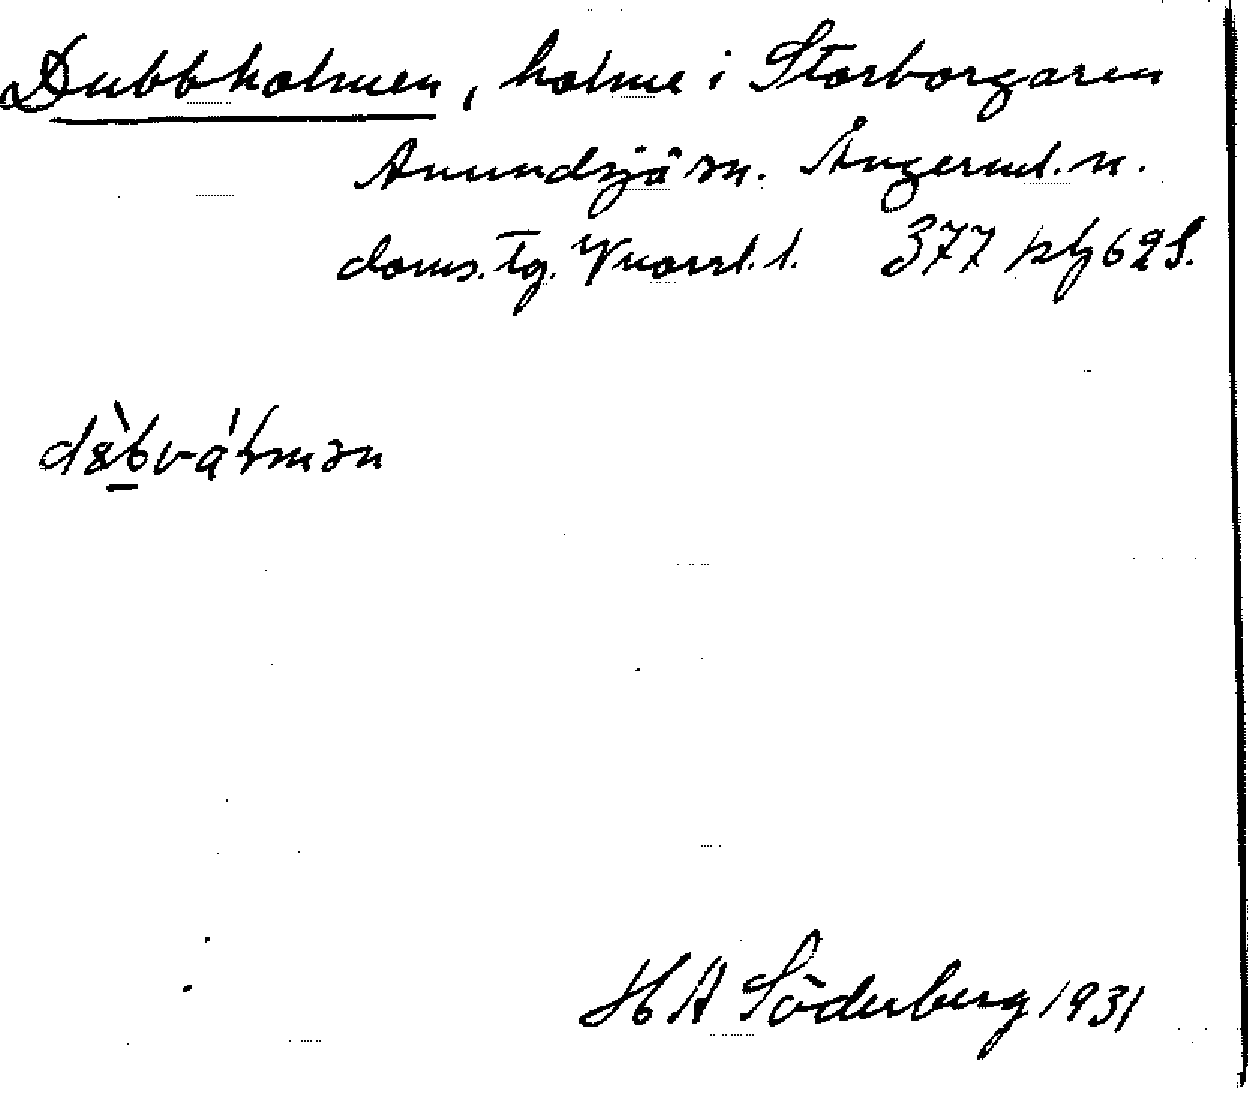 Dubbholmen, holme i Storborgaren
Anundsjö sn. Ångerml. n.
doms. Tg. Vnorrl. l. 377 plg 62 S.
H A Söderberg 1931